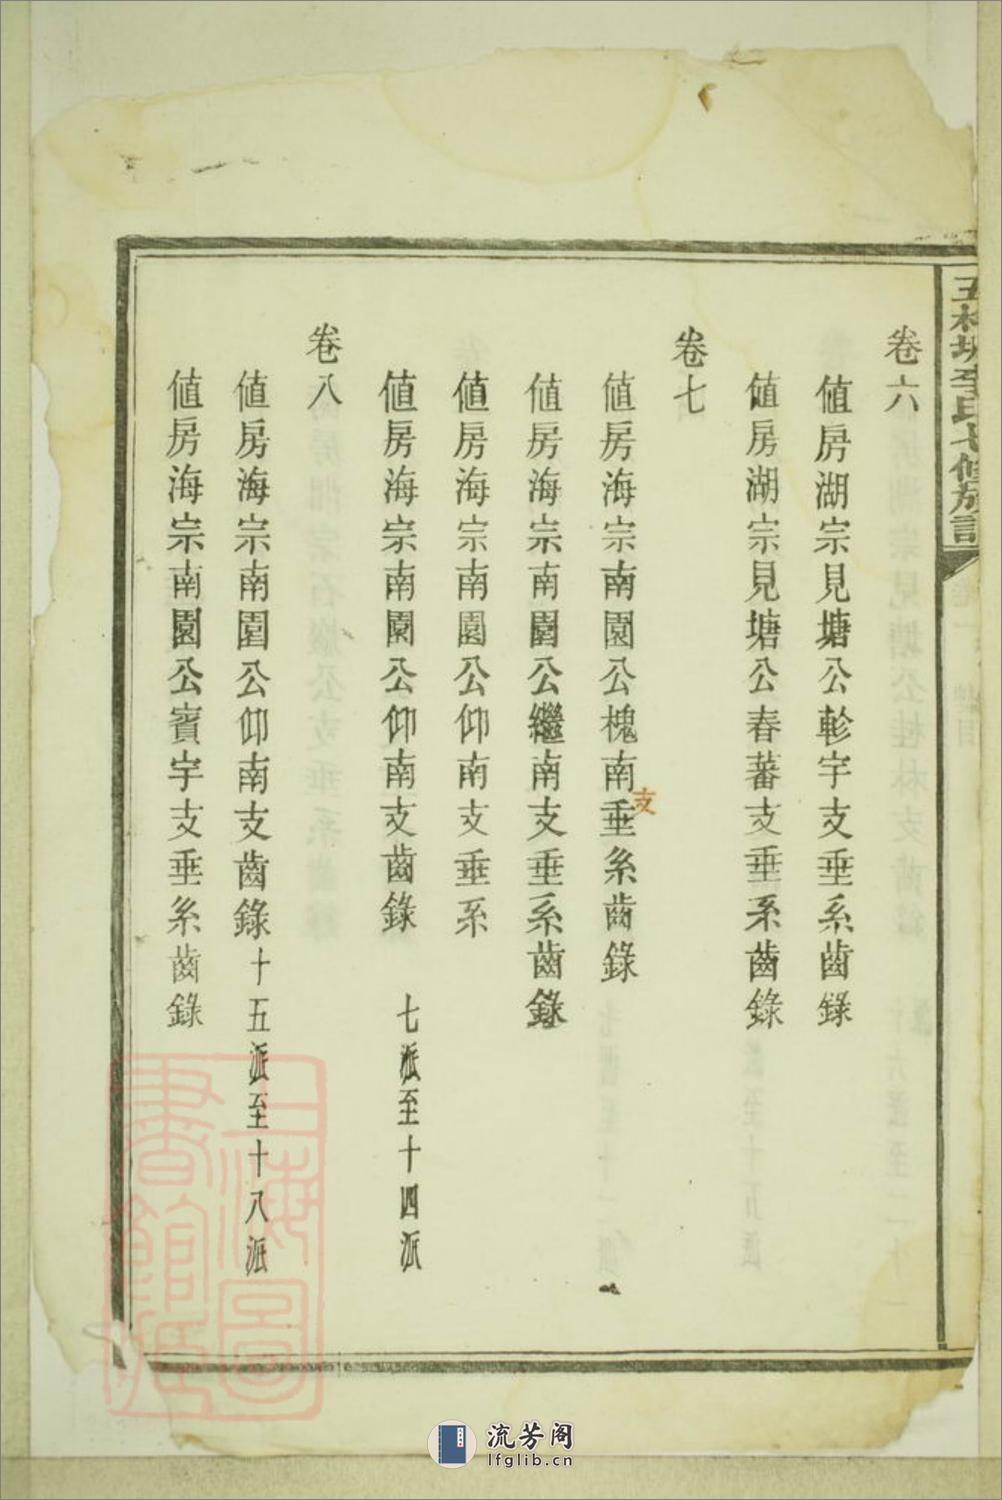 五林塘李氏七修族譜
卷六
値房湖宗見塘公軫宇支垂系齒錄
値房湖宗見塘公春蕃支垂系齒錄
卷七
値房海宗南園公槐南支垂系齒錄
値房海宗南園公繼南支垂系齒錄
値房海宗南園公仰南支垂系
値房海宗南園公仰南支齒錄 七派至十四派
卷八
値房海宗南園公仰南支齒錄十五派至十八派
値房海宗南園公賓宇支垂系齒錄
上海圖書館藏
流芳阁
lfglib.cn